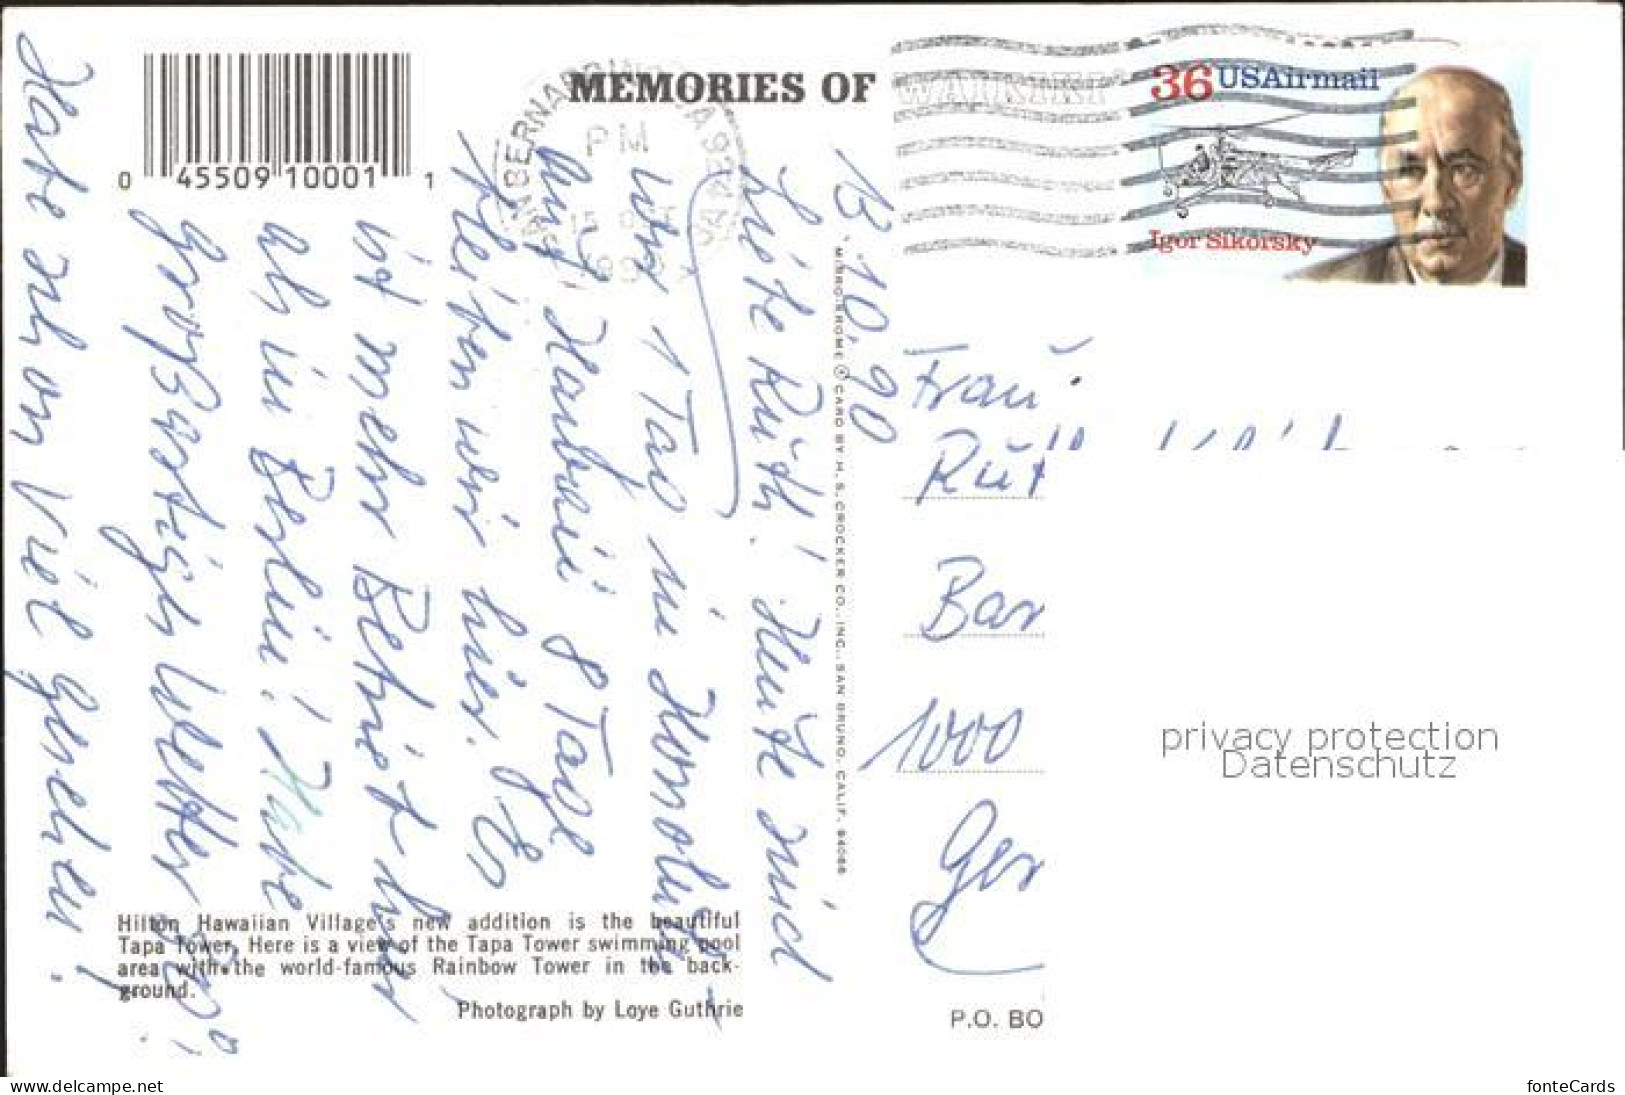 MEMORIES OF WAIKIKI
36 USAirmail
Igor Sikorsky
PM
15 OCT
0 45509 10001 1
13.10.90
Liebe Ruth! Heute sind
wir 1 Tag in Honolulu-
Hawaii 8 Tage
bleiben wir hier. Es
ist mehr Betrieb hier
als in Berlin! Habe
großartiges Wetter
Habe schon viel gesehen!
MIRRO-KROME ® CARD BY H. S. CROCKER CO., INC., SAN BRUNO, CALIF. 94066
Frau
Ruth
1000
Hilton Hawaiian Village's new addition is the beautiful
Tapa Tower. Here is a view of the Tapa Tower swimming pool
area with the world-famous Rainbow Tower in the back-
ground.
Photograph by Loye Guthrie
P.O. BO
privacy protection
Datenschutz
www.delcampe.net
fonteCards